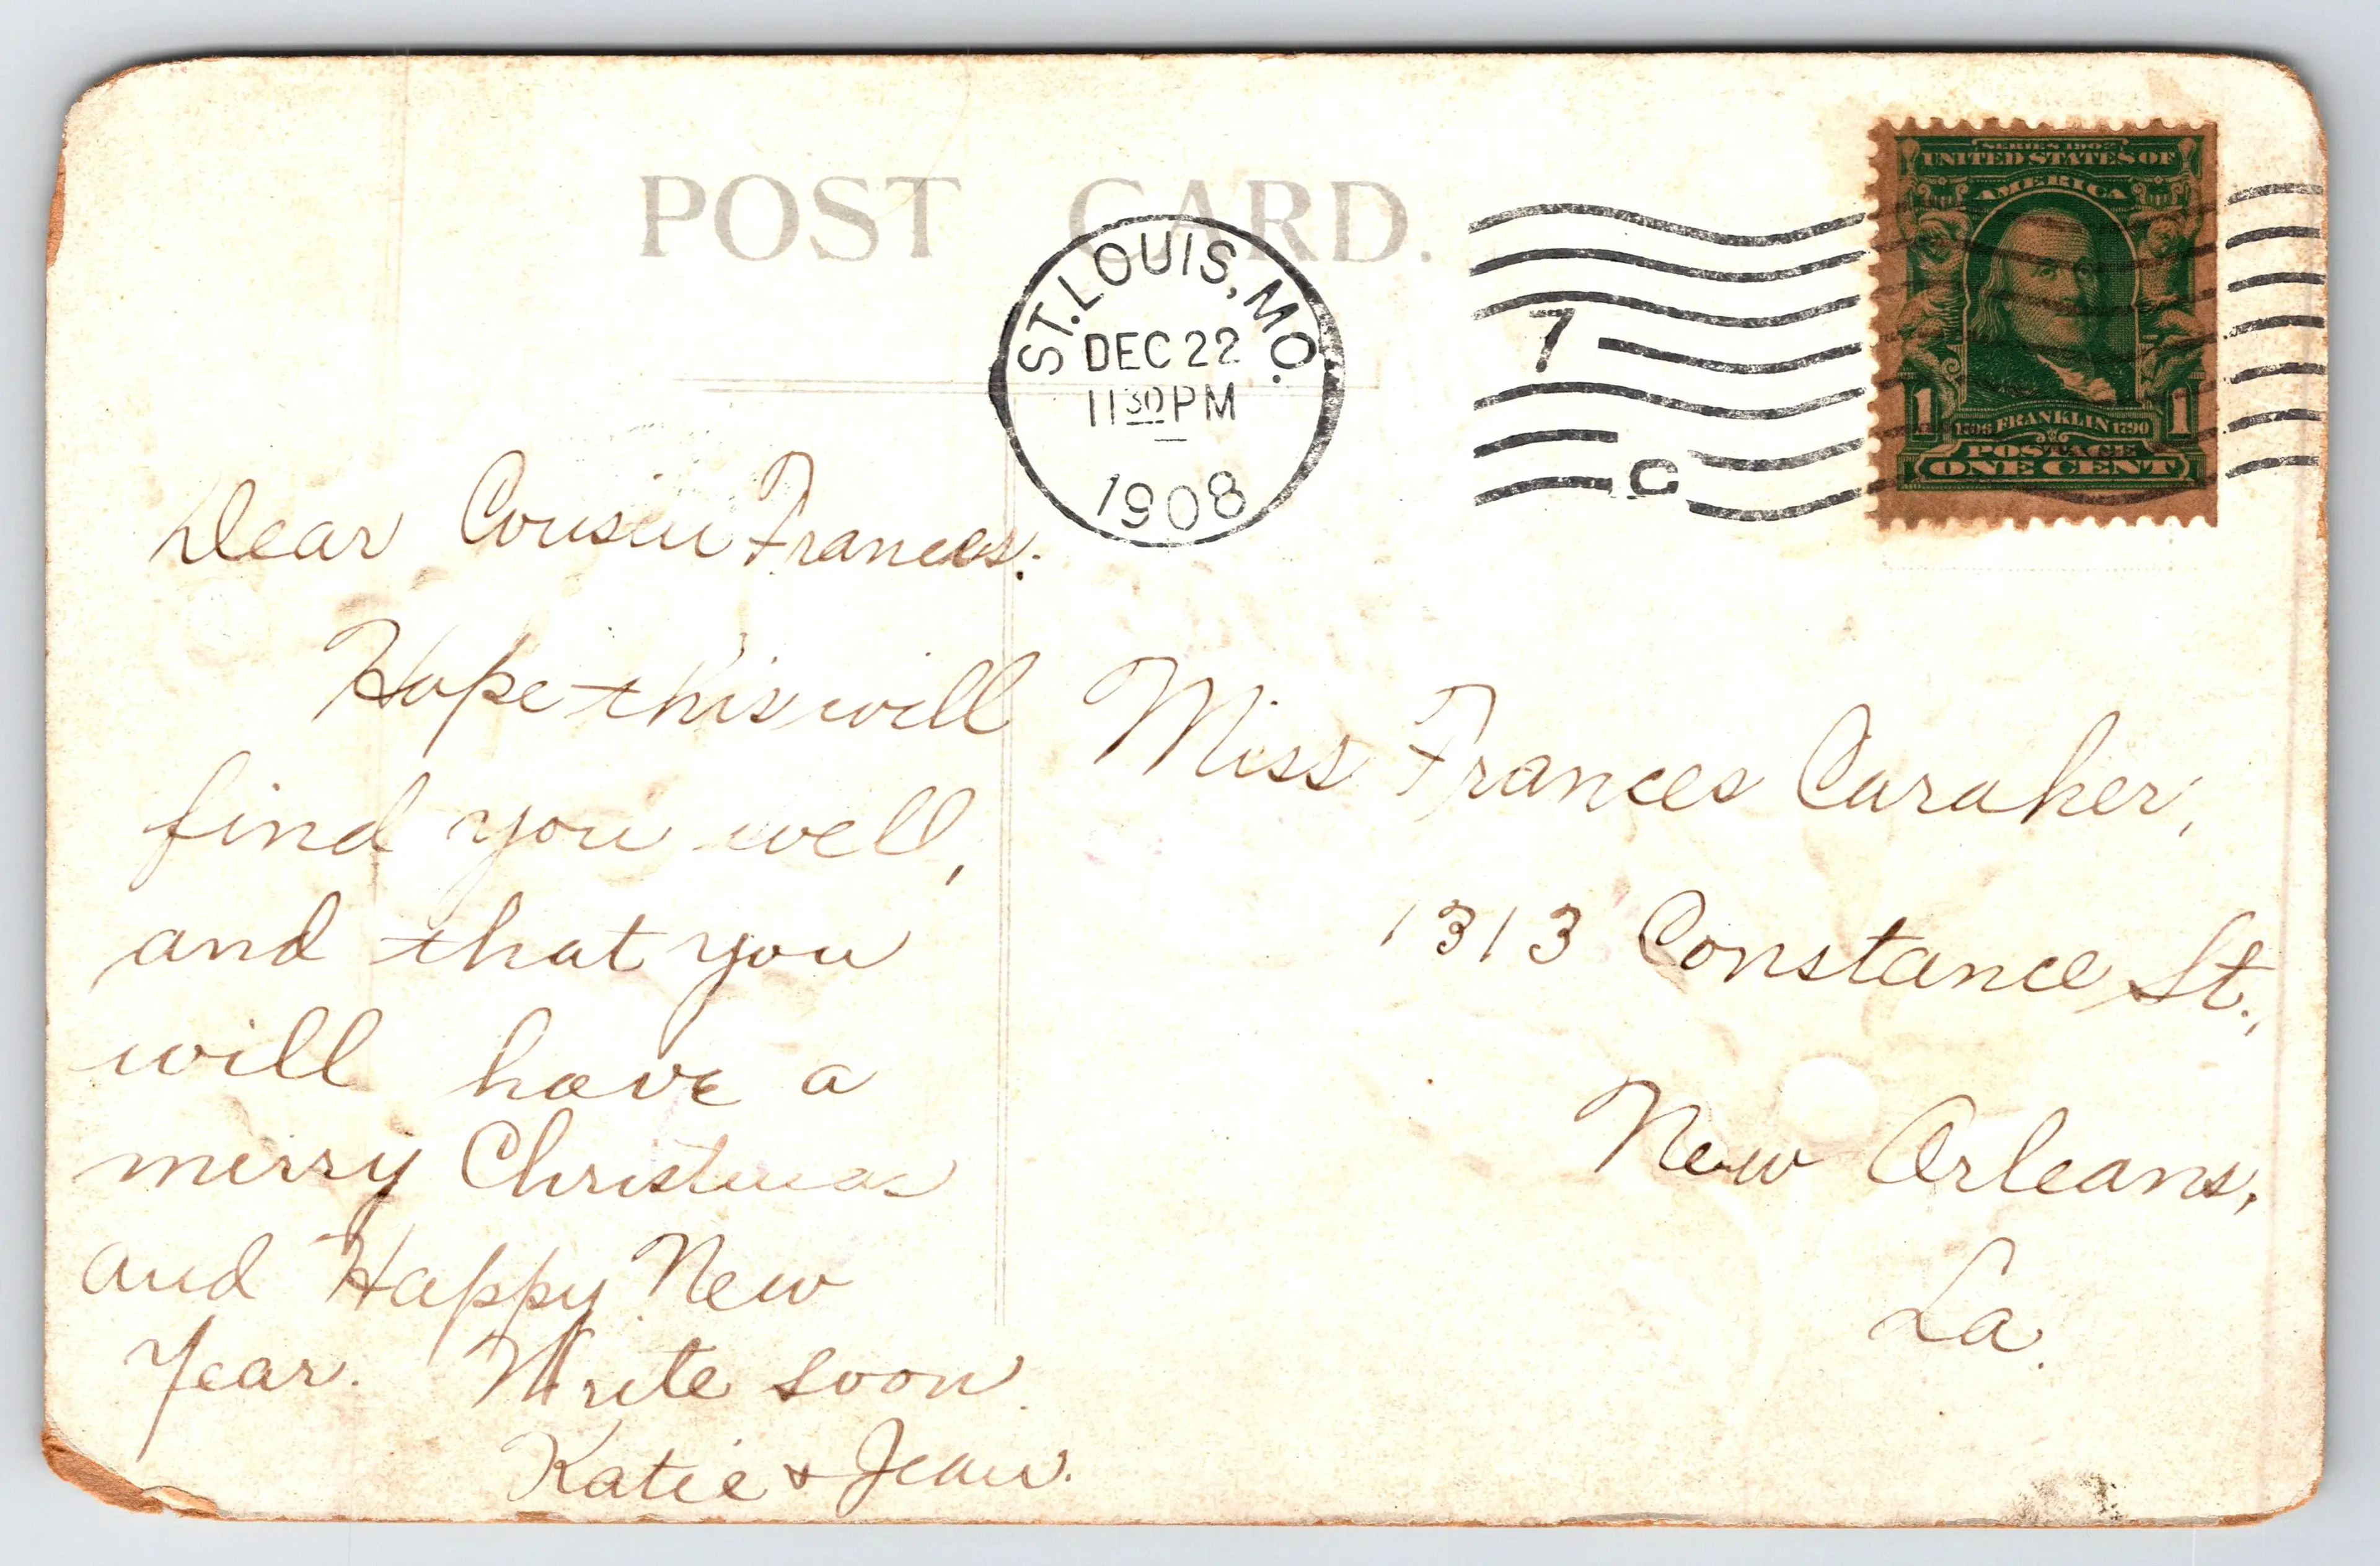 POST CARD.
ST. LOUIS, MO.
DEC 22
11 30 PM
1908
7
C
SERIES 1902
UNITED STATES OF
AMERICA
1 1
1706 FRANKLIN 1790
POSTAGE
ONE CENT
Dear Cousin Frances.
Hope this will
find you well,
and that you
will have a
merry Christmas
and Happy New
Year. Write soon.
Katie & Jean.
Miss Frances Caraher,
1313 Constance St.,
New Orleans,
La.